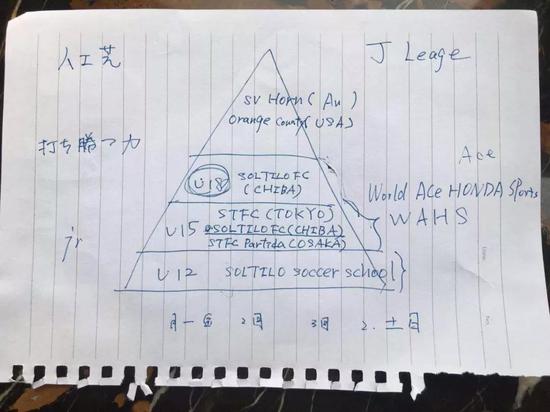 人工芝
J Leage
SV Horn (Au)
Orange County (USA)
打ち勝つ力
Ace
U18 SOLTILO FC
(CHIBA)
World Ace HONDA Sports
WAHS
STFC (TOKYO)
U15 SOLTILO FC (CHIBA)
STFC Partida (OSAKA)
jr
U12 SOLTILO soccer school
月一金 2回 3回 2. 土日